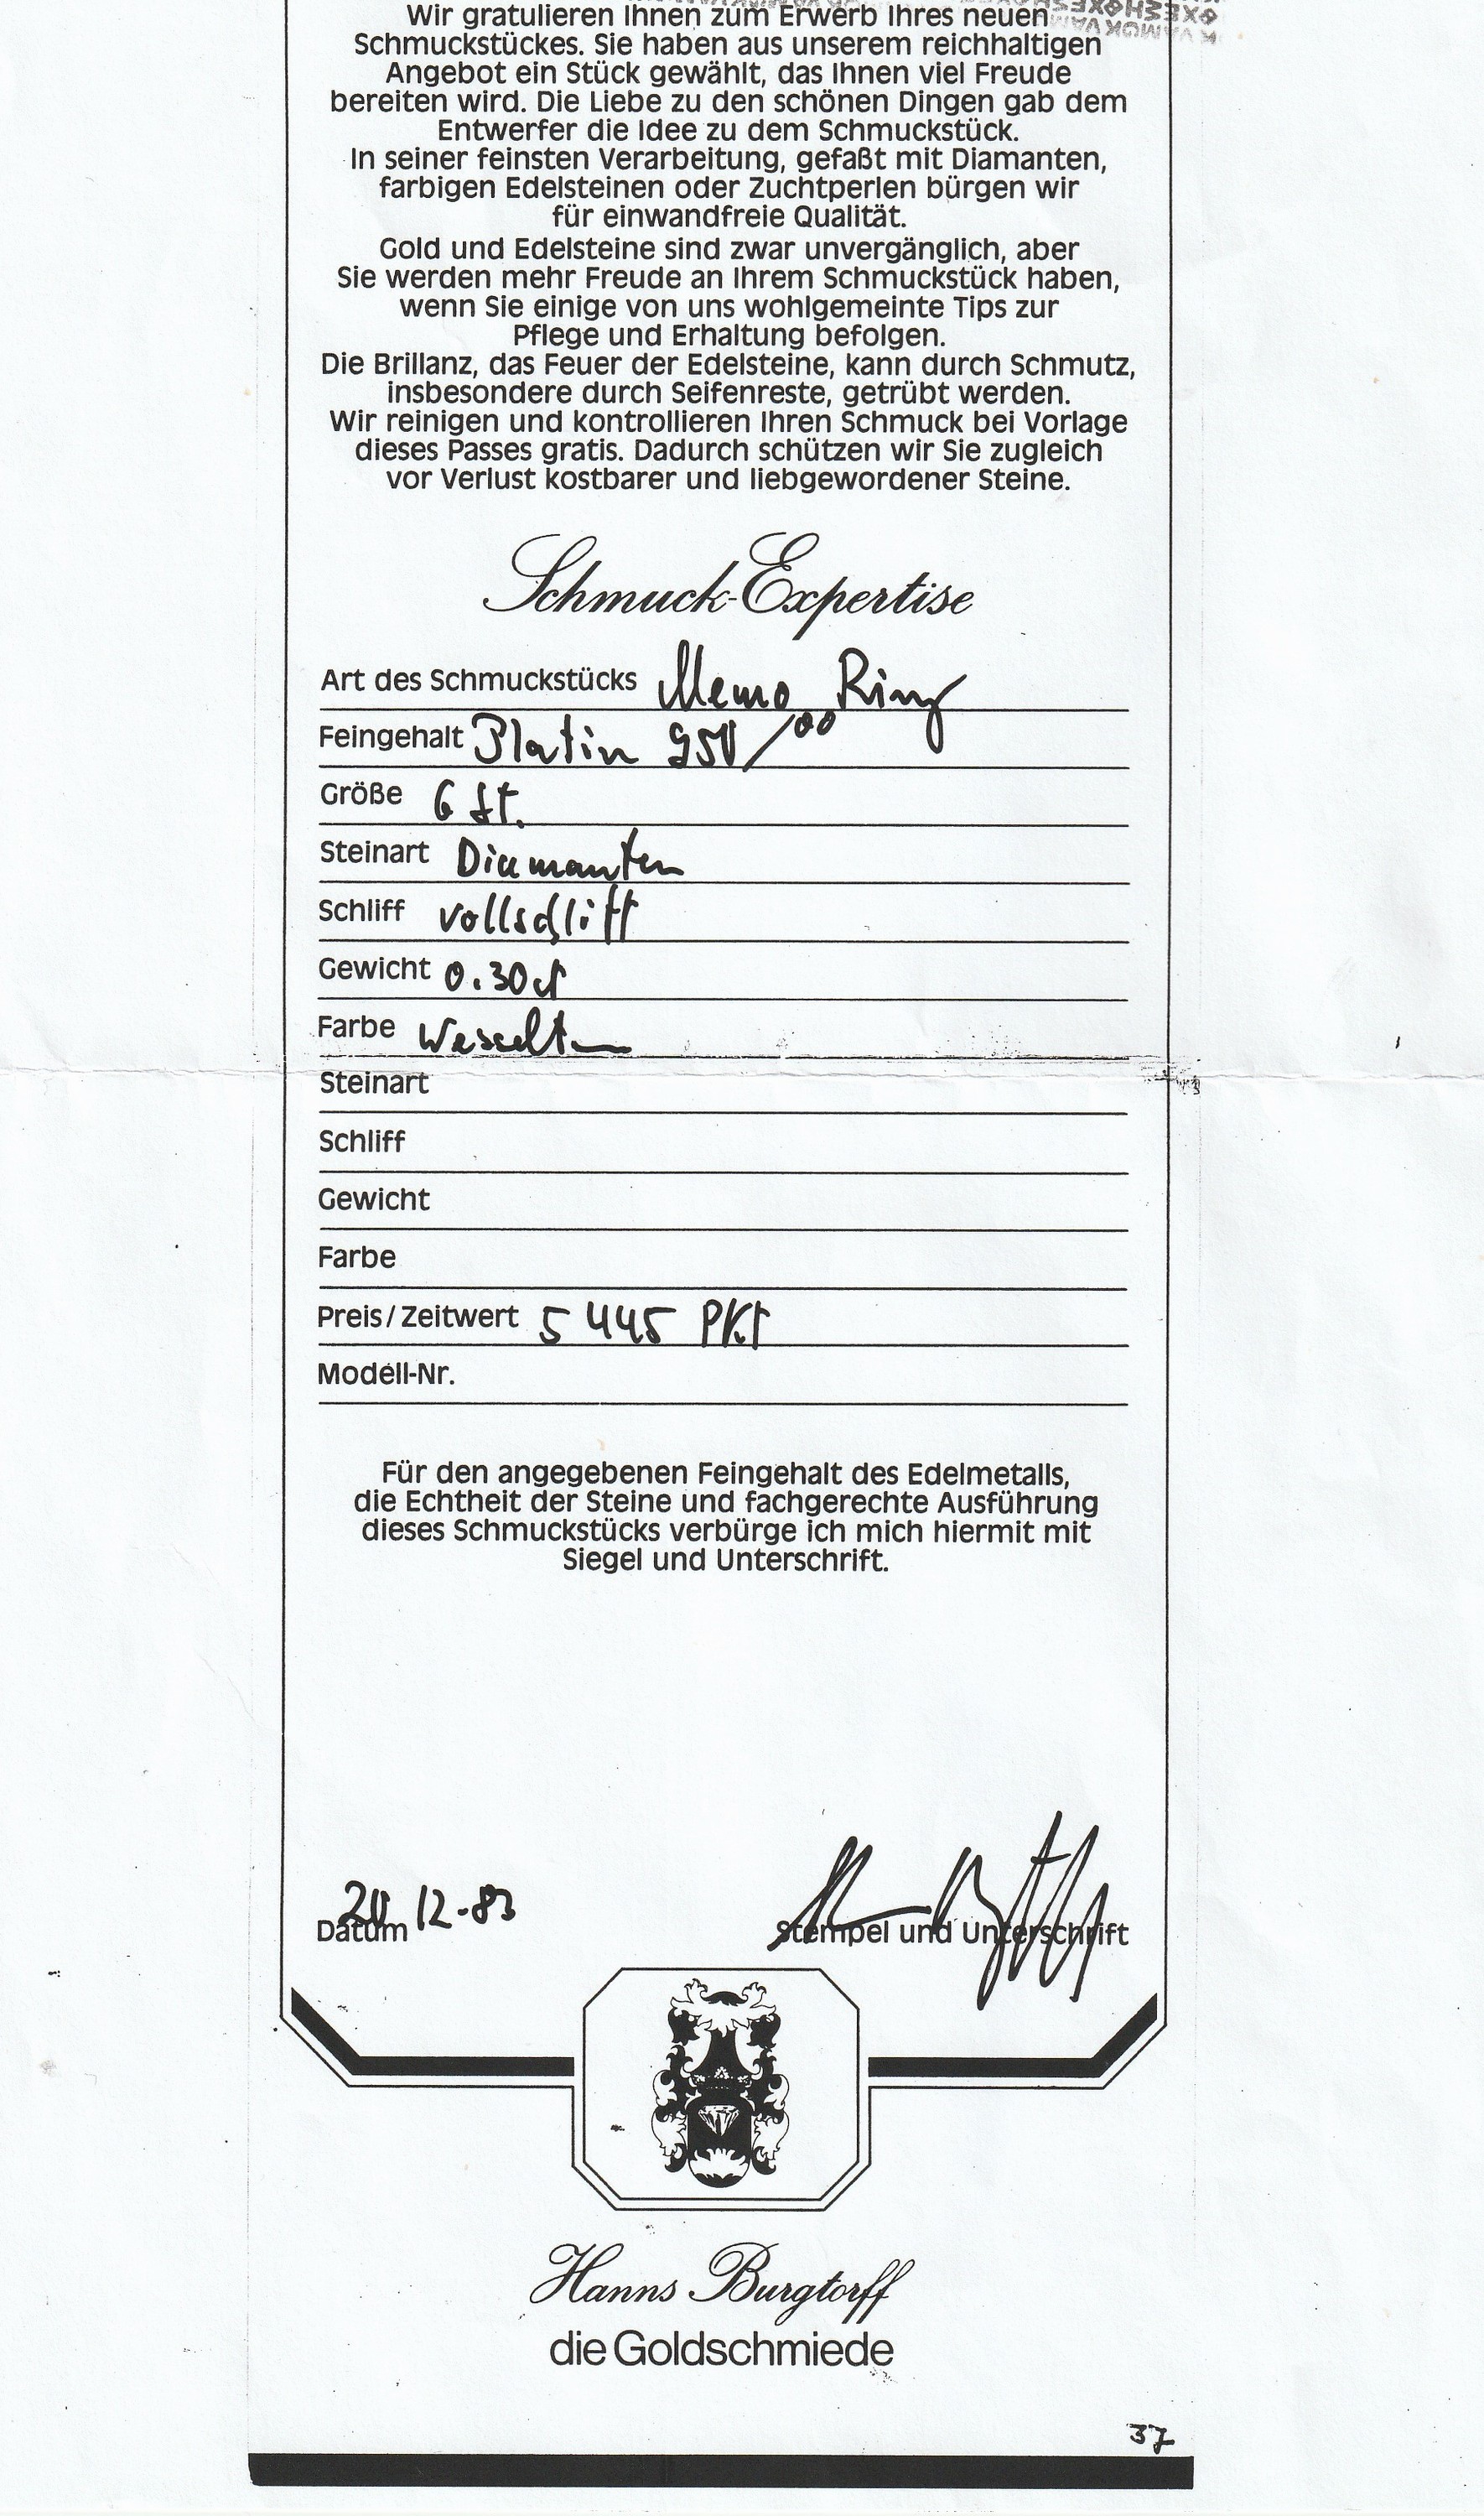 Wir gratulieren Ihnen zum Erwerb Ihres neuen
Schmuckstückes. Sie haben aus unserem reichhaltigen
Angebot ein Stück gewählt, das Ihnen viel Freude
bereiten wird. Die Liebe zu den schönen Dingen gab dem
Entwerfer die Idee zu dem Schmuckstück.
In seiner feinsten Verarbeitung, gefaßt mit Diamanten,
farbigen Edelsteinen oder Zuchtperlen bürgen wir
für einwandfreie Qualität.
Gold und Edelsteine sind zwar unvergänglich, aber
Sie werden mehr Freude an Ihrem Schmuckstück haben,
wenn Sie einige von uns wohlgemeinte Tips zur
Pflege und Erhaltung befolgen.
Die Brillanz, das Feuer der Edelsteine, kann durch Schmutz,
insbesondere durch Seifenreste, getrübt werden.
Wir reinigen und kontrollieren Ihren Schmuck bei Vorlage
dieses Passes gratis. Dadurch schützen wir Sie zugleich
vor Verlust kostbarer und liebgewordener Steine.
Schmuck-Expertise
Art des Schmuckstücks Memo Ring
Feingehalt Platin 950/00
Größe 6 St.
Steinart Diamanten
Schliff Vollschliff
Gewicht 0.30 ct
Farbe Wesselton
Steinart
Schliff
Gewicht
Farbe
Preis/Zeitwert 5 445 PKT
Modell-Nr.
Für den angegebenen Feingehalt des Edelmetalls,
die Echtheit der Steine und fachgerechte Ausführung
dieses Schmuckstücks verbürge ich mich hiermit mit
Siegel und Unterschrift.
20 12-83
Datum
Stempel und Unterschrift
Hanns Burgtorff
die Goldschmiede
37